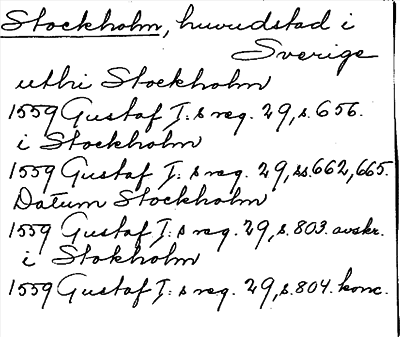 Stockholm, huvudstad i
Sverige
uthi Stockholm
1559 Gustaf I:s reg. 29, s. 656.
i Stockholm
1559 Gustaf I:s reg. 29, ss. 662, 665.
Datum Stockholm
1559 Gustaf I:s reg. 29, s. 803. avskr.
i Stokholm
1559 Gustaf I:s reg. 29, s. 804. konc.